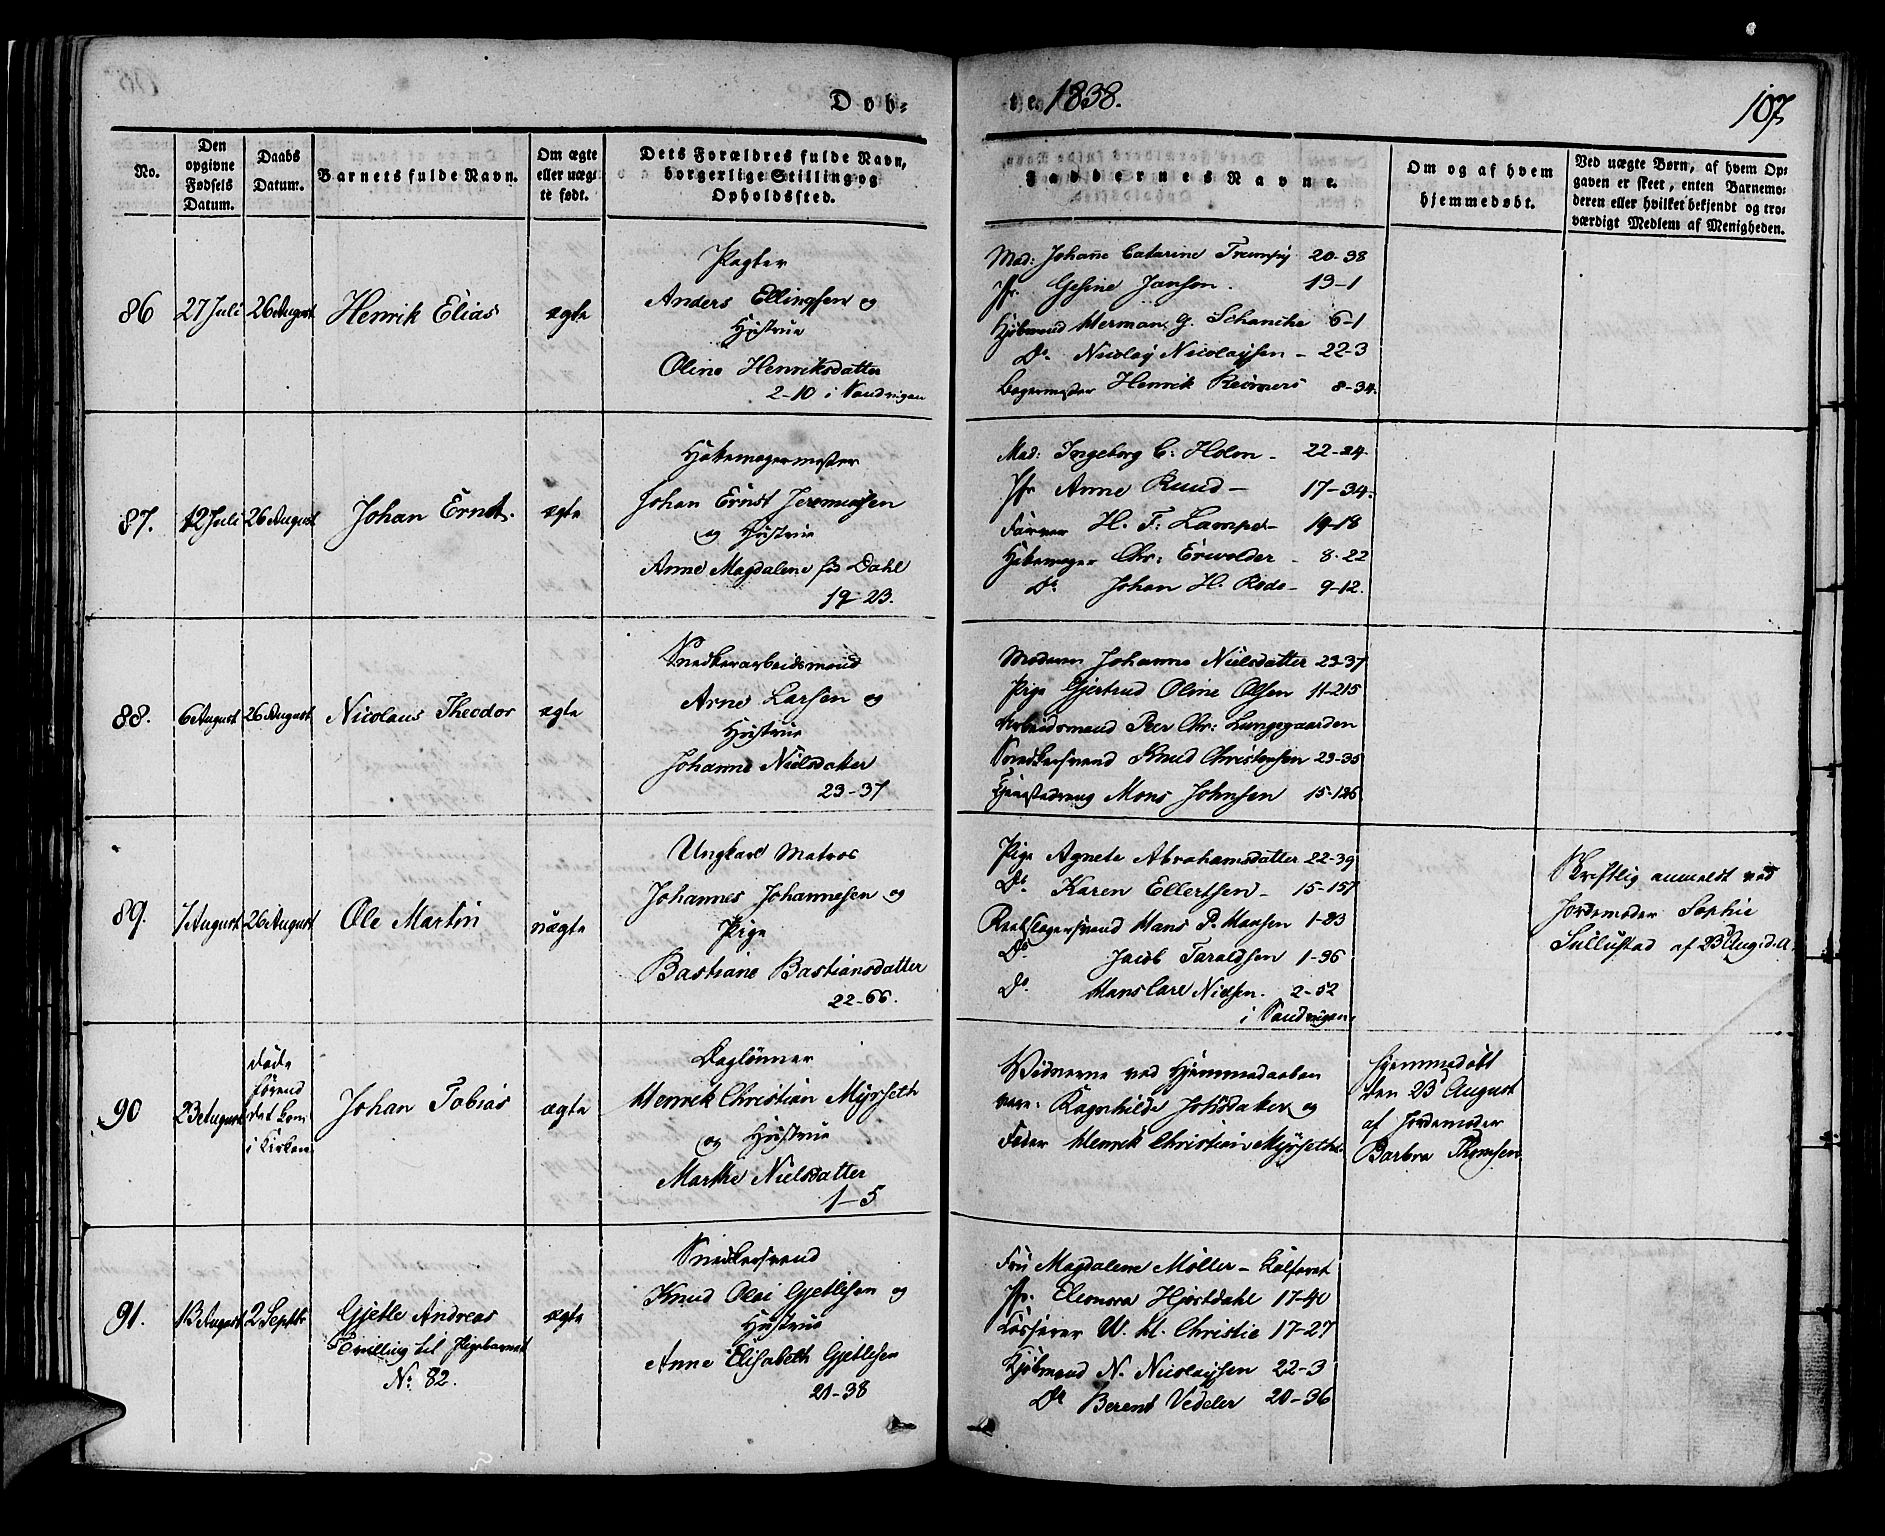 Døb-
te 1838.
107
No.
Den opgivne Fødsels Datum.
Daabs Datum.
Barnets fulde Navn.
Om ægte eller uægte født.
Dets Forældres fulde Navn, borgerlige Stilling og Opholdssted.
Faddernes Navne.
Om og af hvem hjemmedøbt.
Ved uægte Børn, af hvem Opgaven er skeet, enten Barnemoderen eller hvilket bekjendt og troværdigt Medlem af Menigheden.
86
27 Juli
26 August
Henrik Elias
ægte
Pagter
Anders Ellingsen og
Hustrue
Oline Henriksdatter
2-10 i Sandvigen
Mad: Johane Catarine Trumpy 20-38
Jfr. Gesine Janson. 19-1
Kjøbmand Herman G. Schanche 6-1
Do. Nicolay Nicolaysen - 22-3
Bagermester Henrik Reimers 8-34.
87.
12 Juli
26 August
Johan Ernst.
ægte
Johan Ernst Jeremiasen
og Hustrue
Anne Magdalene fød Dahl
19-23.
Mad: Ingeborg C: Holm - 22-24.
Jfr Anne Ruud - 17-34.
Farver H. F: Lampe - 19-18
Chr: Erwolder - 8-22
Do. Johan H. Rode - 9-12.
88.
6 August
26 August
Nicolaus Theodor
ægte
Snedkerarbeidsmand
Arne Larsen og
Hustrue
Johanne Nielsdatter
23-37
Moderen Johanne Nielsdatter 23-37
Pige Gjertrud Oline Olsen 11-215
Arbeidsmand Peer Chr: Lungegaarden
Snedkersvend Knud Christensen 23-35
Tjenestedreng Mons Johnsen 15-126
89.
7 August
26 August
Ole Martin
uægte
Ungkarl Matros
Johannes Johannesen og
Pige
Bastiane Bastiansdatter
22-66.
Pige Agnete Abrahamsdatter 22-39
Do. Karen Ellertsen - 15-157
Reebslagersvend Hans P. Hansen 1-23
Do. Jacob Taraldsen 1-36
Do. Hans Carl Nielsen. 2-52
i Sandvigen
Skriftlig anmeldt ved
Jordemoder Sophie
Sullustad af 23 Aug. d. A.
90
23 August
døde
førend
det kom
i Kirken
Johan Tobias
ægte
Daglønner
Henrik Christian Myrseth
og Hustrue
Marthe Nielsdatter
1-5
Vidnerne ved Hjemmedaaben
vare: Ragnhilde Johsdatter og
Fader Henrik Christian Myrseth.
Hjemmedøbt
den 23 August
af Jordemoder
Barbra Thomsen
91.
13 August
2 Septbr
Gjetle Andreas
Tvilling til Pigebarnet
No. 82.
ægte
Snedkersvend
Knud Olai Gjetlesen og
Hustrue
Anne Elisabeth Gjetlesen
21-38
Fru Magdalene Møller - Kalfaret
Jfr. Eleonora Hjortdahl 17-40
Kasserer W. H. Christie 17-27
Kjøbmand N. Nicolaysen 22-3
Do Berent Vedeler 20-36